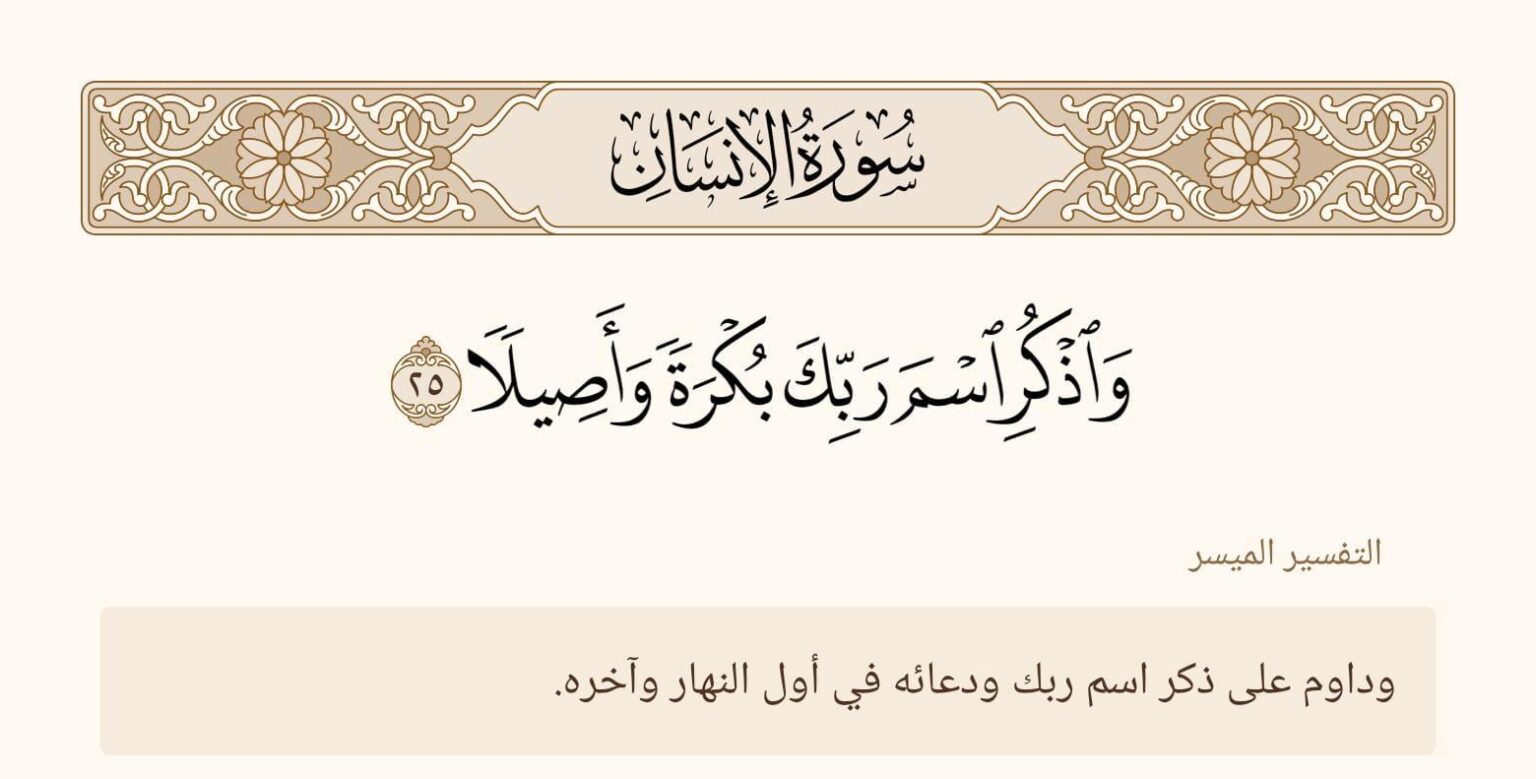 سُورَةُ الإِنسَانِ
وَٱذۡكُرِ ٱسۡمَ رَبِّكَ بُكۡرَةٗ وَأَصِيلٗا ٢٥
التفسير الميسر
وداوم على ذكر اسم ربك ودعائه في أول النهار وآخره.